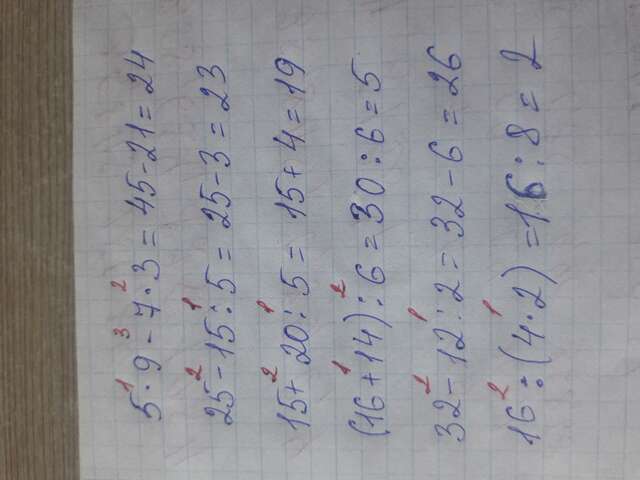 5·9-7·3=45-21=24
25-15:5=25-3=23
15+20:5=15+4=19
(16+14):6=30:6=5
32-12:2=32-6=26
16:(4·2)=16:8=2